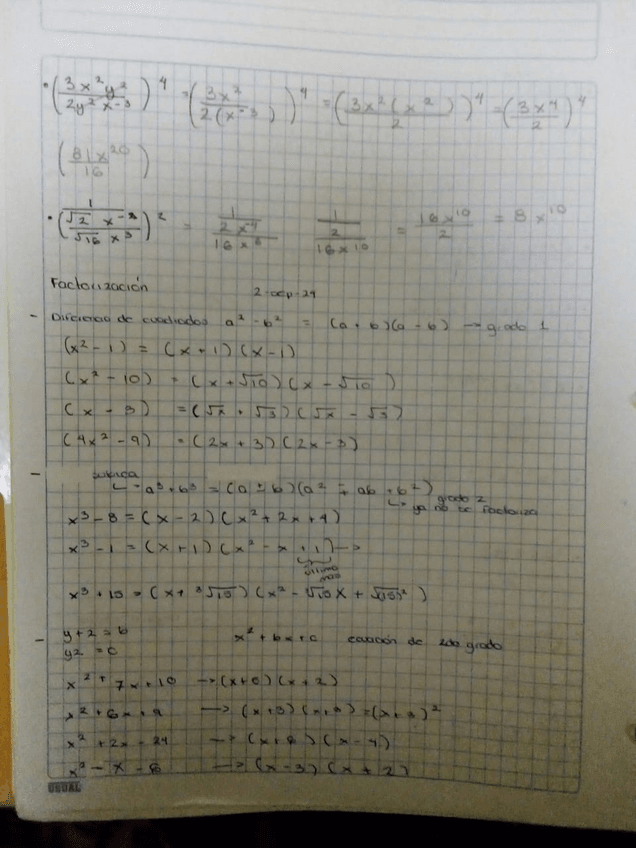 • (3x²y² / 2y²x⁻³)⁴ = (3x² / 2(x⁻³))⁴ = (3x²(x²) / 2)⁴ = (3x⁴ / 2)⁴
(81x²⁰ / 16)
• (1 / (√2 x⁻² / √16 x³))² = 1 / (2x⁻⁴ / 16x⁶) 1 / (2 / 16x¹⁰) = 16x¹⁰ / 2 = 8x¹⁰
Factorización 2-sep-24
- Diferencia de cuadrados a² - b² = (a + b)(a - b) → grado 1
(x² - 1) = (x + 1)(x - 1)
(x² - 10) = (x + √10)(x - √10)
(x - 3) = (√x + √3)(√x - √3)
(4x² - 9) = (2x + 3)(2x - 3)
- cubica
a³ + b³ = (a ± b)(a² ∓ ab + b²) grado 2
ya no se factoriza
x³ - 8 = (x - 2)(x² + 2x + 4)
x³ - 1 = (x + 1)(x² - x + 1) →
último
más
x³ + 15 = (x + ³√15)(x² - ³√15 x + √(15)²)
- y + z = b x² + bx + c ecuación de 2do grado
yz = c
x² + 7x + 10 → (x + 5)(x + 2)
x² + 6x + 9 → (x + 3)(x + 3) = (x + 3)²
x² + 2x - 24 → (x + 6)(x - 4)
x² - x - 6 → (x - 3)(x + 2)
USUAL